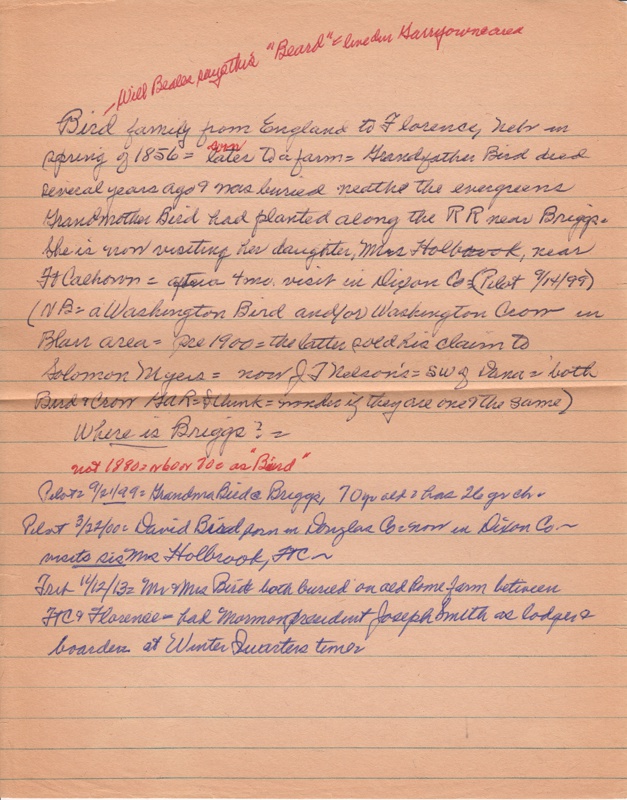 Will Beales says this is "Beard" = lived in Garryowen area
Bird family from England to Florence, Nebr in
spring of 1856 = soon later to a farm = Grandfather Bird died
several years ago & was buried neathe the evergreens
Grandmother Bird had planted along the RR near Briggs =
She is now visiting her daughter, Mrs Holbrook, near
Ft Calhoun = after a 4 mo. visit in Dixon Co = (Pilot 9/14/99)
(NB = a Washington Bird and/or Washington Crow in
Blair area = pre 1900 = the latter sold his claim to
Solomon Myers = now J T Nelson's = SW of Dana = both
Bird & Crow GAR = I think = wonder if they are one & the same)
Where is Briggs? =
not 1880 = or 60 or 700 as "Bird"
Pilot = 9/21/99 = Grandma Bird @ Briggs, 70 yr old = has 26 gr ch =
Pilot 3/22/00 = David Bird born in Douglas Co = now in Dixon Co ~
visits sis Mrs Holbrook, FtC ~
Trib 11/12/13 = Mr & Mrs Bird both buried on old home farm between
FtC & Florence = had Mormon president Joseph Smith as lodger &
boarder at Winter Quarters time =